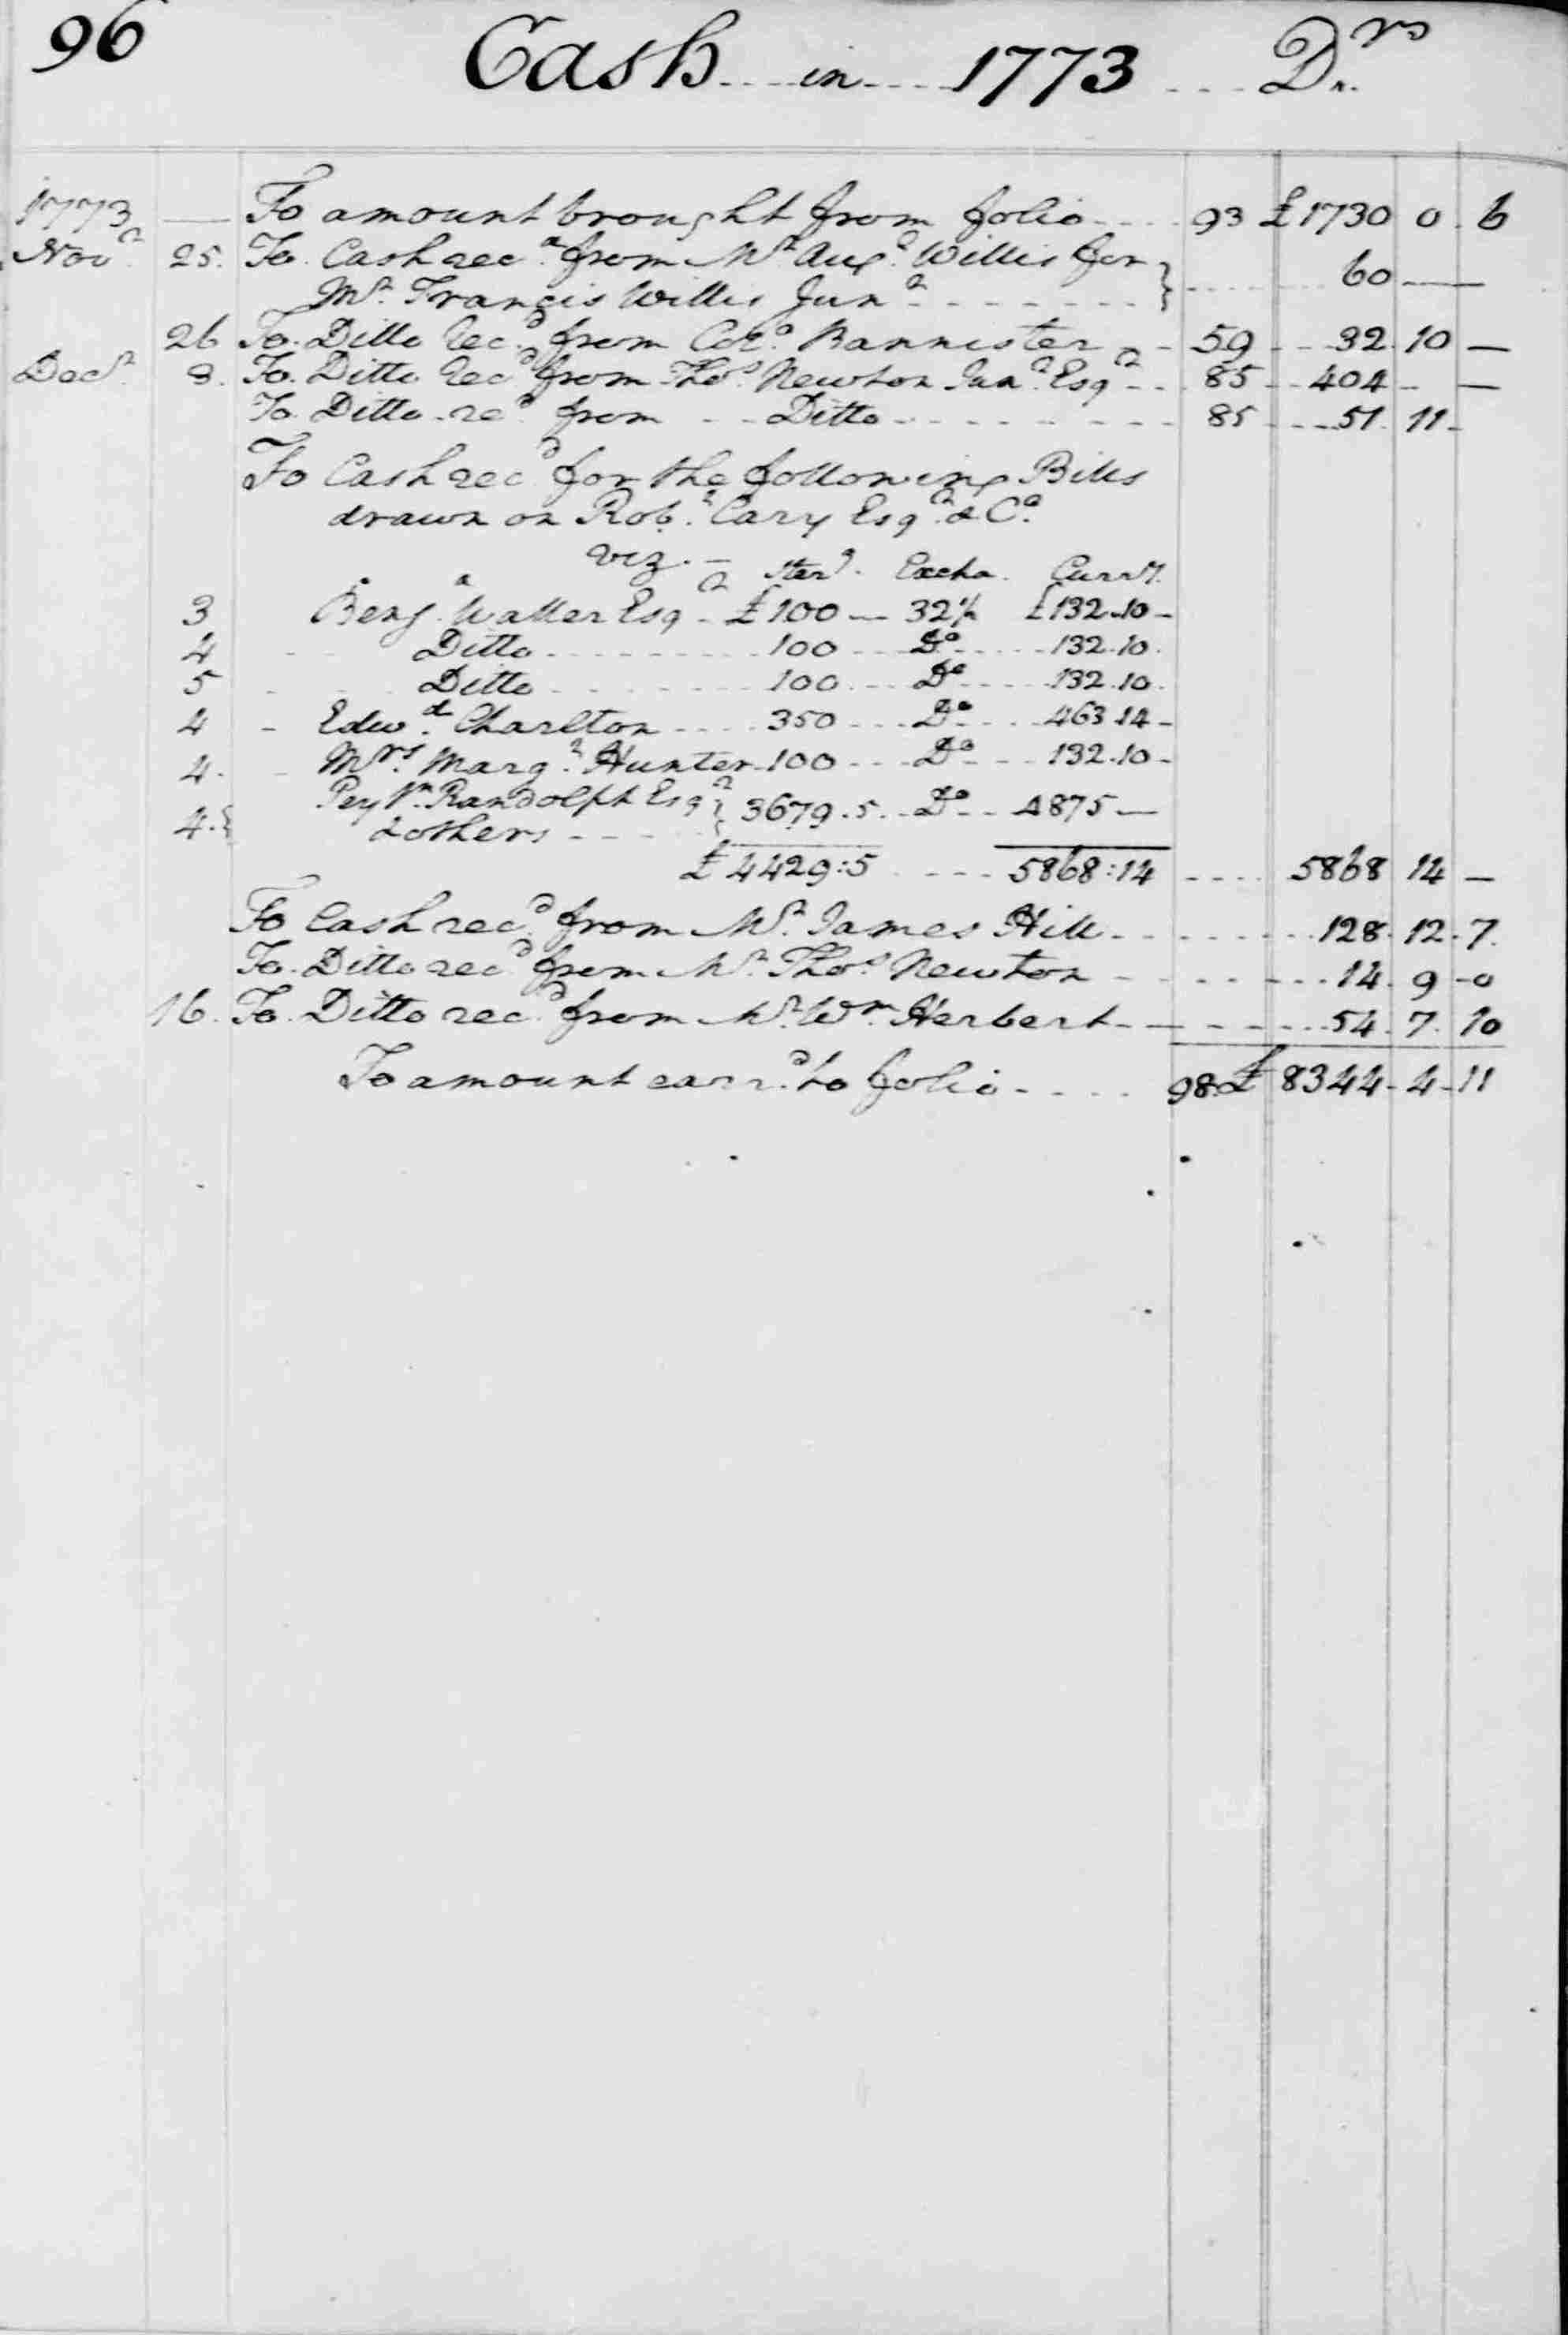 96 Cash in 1773 Drs
1773 To amount brought from folio 93 £1730 0 6
Novr 25. To Cash recd from Mr Augt Willis for
Mr Francis Willis Junr 60
26 To Ditto Recd from Colo Bannister 59 32 10 —
Decr 3. To Ditto Recd from Thos Newton Junr Esqr 85 404 — —
To Ditto recd from Ditto 85 51 11
To Cash recd for the following Bills
drawn on Robt Cary Esqr & Co
viz. — Sterg. Excha. Curry.
3 Benja Waller Esqr £100 — 32½ £132.10 —
4 Ditto 100 Do 132.10.
5 Ditto 100 Do 132.10.
4 Edwd Charlton 350 Do 463.14 —
4. Mrs Margt Hunter 100 Do 132.10 —
4. Peyn Randolph Esqr
& others 3679.5 Do 4875 —
£4429:5 5868:14 5868 14 —
To Cash recd from Mr James Hill 128. 12. 7.
To Ditto recd from Mr Thos Newton 14. 9 0
16. To Ditto recd from Mr Wm Herbert 54. 7. 10
To amount carrd to folio 98. £8344 4 11